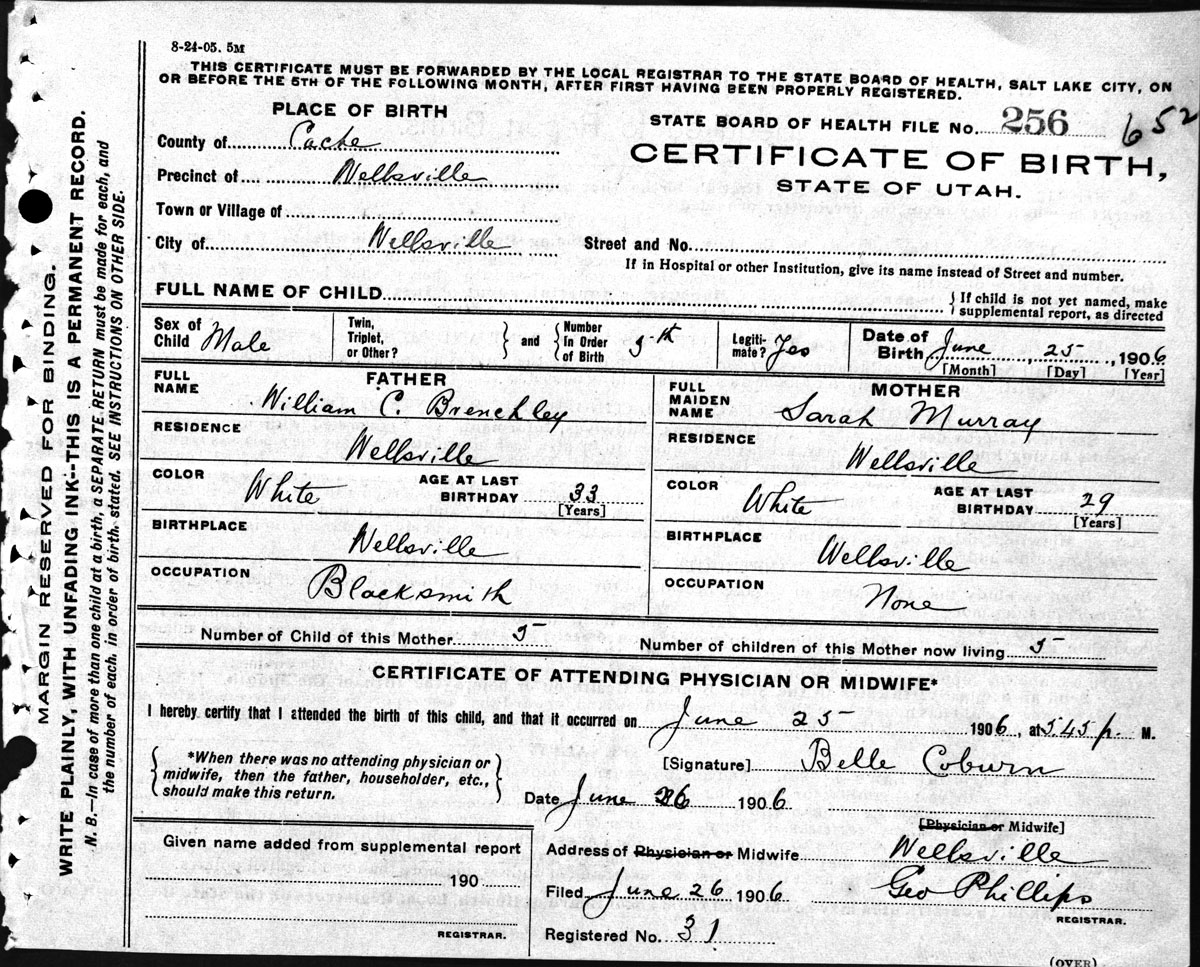 8-24-05. 5M
THIS CERTIFICATE MUST BE FORWARDED BY THE LOCAL REGISTRAR TO THE STATE BOARD OF HEALTH, SALT LAKE CITY, ON
OR BEFORE THE 5TH OF THE FOLLOWING MONTH, AFTER FIRST HAVING BEEN PROPERLY REGISTERED.
PLACE OF BIRTH
STATE BOARD OF HEALTH FILE No. 256 652
County of Cache
CERTIFICATE OF BIRTH,
STATE OF UTAH.
Precinct of Wellsville
Town or Village of
City of Wellsville
Street and No.
If in Hospital or other Institution, give its name instead of Street and number.
FULL NAME OF CHILD
{If child is not yet named, make
supplemental report, as directed
Sex of Child Male
Twin, Triplet, or Other?
} and {
Number In Order of Birth 5th
Legiti-mate? Yes
Date of Birth June 25, 1906
[Month] [Day] [Year]
FATHER
FULL NAME William C. Brenchley
RESIDENCE Wellsville
COLOR White
AGE AT LAST BIRTHDAY 33
[Years]
BIRTHPLACE Wellsville
OCCUPATION Blacksmith
MOTHER
FULL MAIDEN NAME Sarah Murray
RESIDENCE Wellsville
COLOR White
AGE AT LAST BIRTHDAY 29
[Years]
BIRTHPLACE Wellsville
OCCUPATION None
Number of Child of this Mother 5
Number of children of this Mother now living 5
CERTIFICATE OF ATTENDING PHYSICIAN OR MIDWIFE*
I hereby certify that I attended the birth of this child, and that it occurred on June 25 1906, at 5.45 p. M.
{*When there was no attending physician or
midwife, then the father, householder, etc.,
should make this return.}
[Signature] Belle Coburn
Date June 26 1906
[Physician or Midwife]
Given name added from supplemental report
190
REGISTRAR.
Address of Physician or Midwife Wellsville
Filed June 26 1906 Geo Phillips
REGISTRAR.
Registered No. 31
(OVER)
MARGIN RESERVED FOR BINDING.
WRITE PLAINLY, WITH UNFADING INK--THIS IS A PERMANENT RECORD.
N. B.—In case of more than one child at a birth a SEPARATE RETURN must be made for each, and
the number of each, in order of birth, stated. SEE INSTRUCTIONS ON OTHER SIDE.